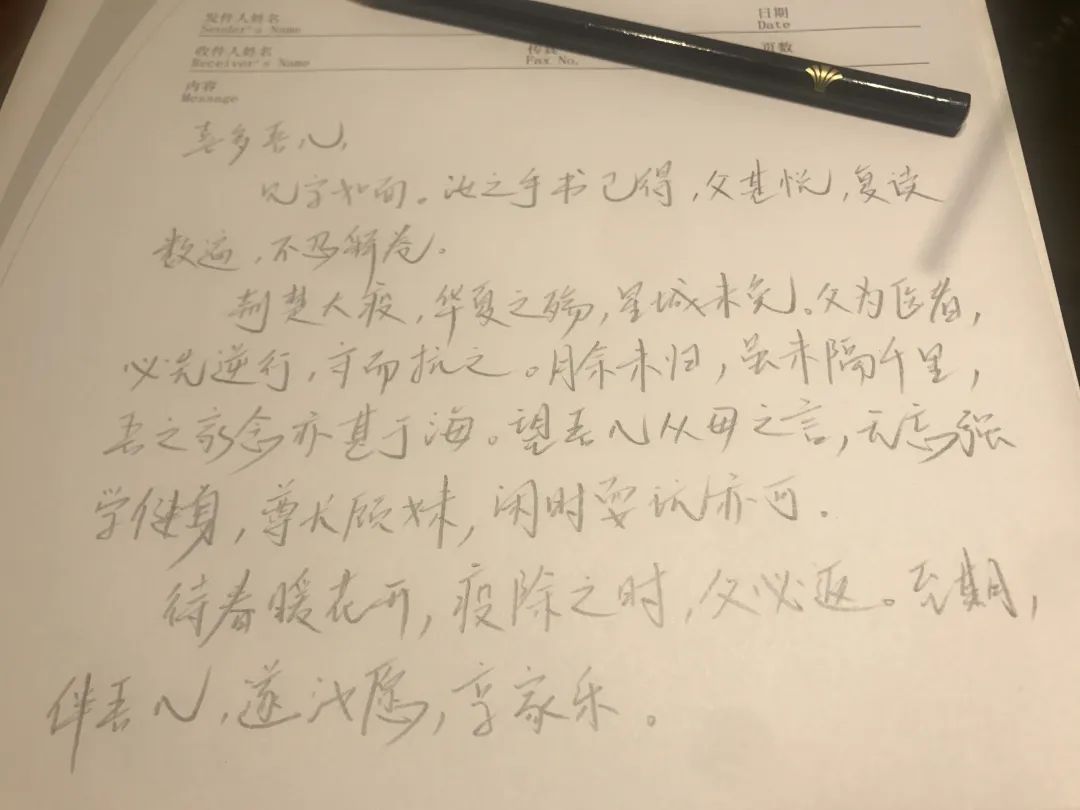 发件人姓名
Sender's Name
日期
Date
收件人姓名
Receiver's Name
传真
Fax No.
页数
内容
Message
喜多吾儿,
见字如面。汝之手书已得,父甚悦,复读
数遍,不忍释卷。
荆楚大疫,华夏之殇,星城未免。父为医者,
必先逆行,守而抗之。月余未归,虽未隔千里,
吾之家念亦甚于海。望吾儿从母之言,无忘强
学健身,尊长顾妹,闲时耍玩亦可.
待春暖花开,疫除之时,父必返。至期,
伴吾儿,遂汝愿,享家乐。